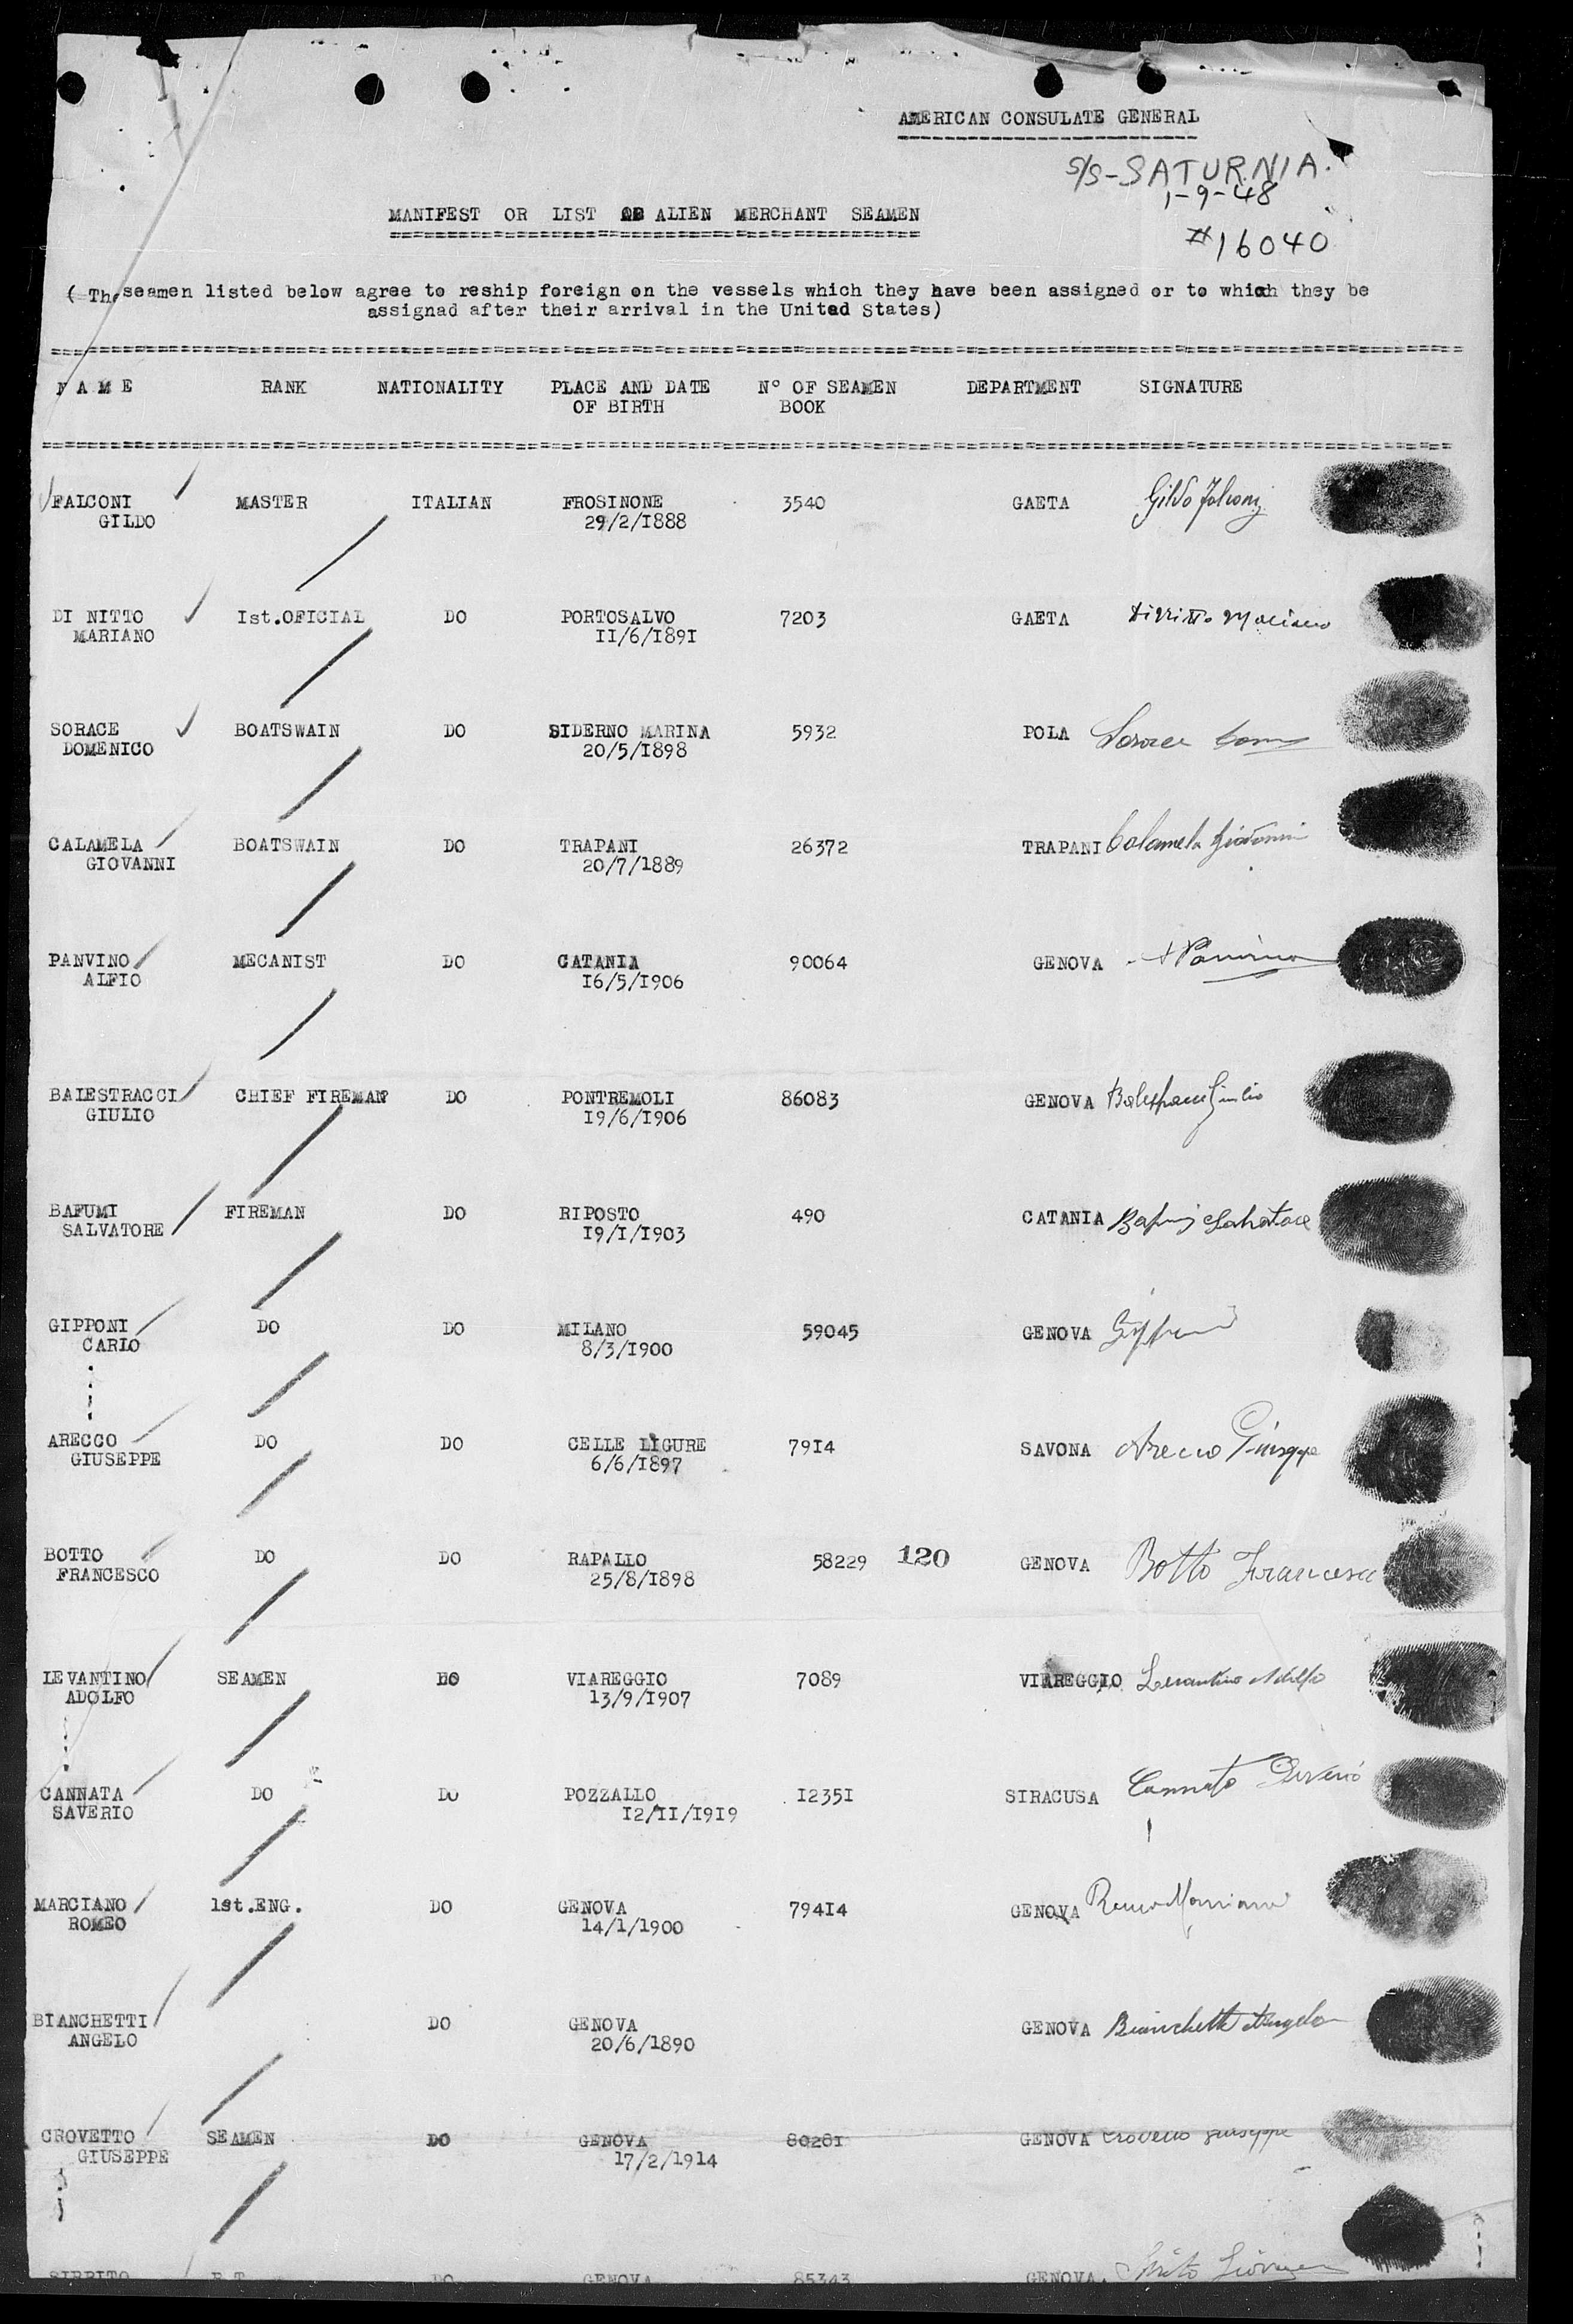 AMERICAN CONSULATE GENERAL
S/S-SATURNIA.
1-9-48
#16040
MANIFEST OR LIST OF ALIEN MERCHANT SEAMEN
( The seamen listed below agree to reship foreign on the vessels which they have been assigned or to which they be
assignad after their arrival in the United States)
NAME RANK NATIONALITY PLACE AND DATE N° OF SEAMEN DEPARTMENT SIGNATURE
OF BIRTH BOOK
FALCONI MASTER ITALIAN FROSINONE 3540 GAETA Gildo Falconi
GILDO 29/2/1888
DI NITTO Ist.OFICIAL DO PORTOSALVO 7203 GAETA Di Nitto Mariano
MARIANO II/6/I89I
SORACE BOATSWAIN DO SIDERNO MARINA 5932 POLA Sorace Dom
DOMENICO 20/5/I898
CALAMELA BOATSWAIN DO TRAPANI 26372 TRAPANI Calamela Giovanni
GIOVANNI 20/7/1889
PANVINO MECANIST DO CATANIA 90064 GENOVA A Panvino
ALFIO I6/5/I906
BALESTRACCI CHIEF FIREMAN DO PONTREMOLI 86083 GENOVA Balestracci Giulio
GIULIO I9/6/I906
BAFUMI FIREMAN DO RIPOSTO 490 CATANIA Bafumi Salvatore
SALVATORE I9/I/I903
GIPPONI DO DO MILANO 59045 GENOVA Gipponi
CARLO 8/3/I900
ARECCO DO DO CELLE LIGURE 79I4 SAVONA Arecco Giuseppe
GIUSEPPE 6/6/I897
BOTTO DO DO RAPALLO 58229 120 GENOVA Botto Francesco
FRANCESCO 25/8/I898
LEVANTINO SEAMEN DO VIAREGGIO 7089 VIAREGGIO Levantino Adolfo
ADOLFO I3/9/I907
CANNATA DO DO POZZALLO I235I SIRACUSA Cannata Saverio
SAVERIO I2/II/I9I9
MARCIANO 1st.ENG. DO GENOVA 794I4 GENOVA Romeo Marciano
ROMEO 14/1/1900
BIANCHETTI DO GENOVA GENOVA Bianchetti Angelo
ANGELO 20/6/1890
CROVETTO SEAMEN DO GENOVA 8028I GENOVA Crovetto Giuseppe
GIUSEPPE I7/2/1914
SIRRITO DO GENOVA 85343 GENOVA.